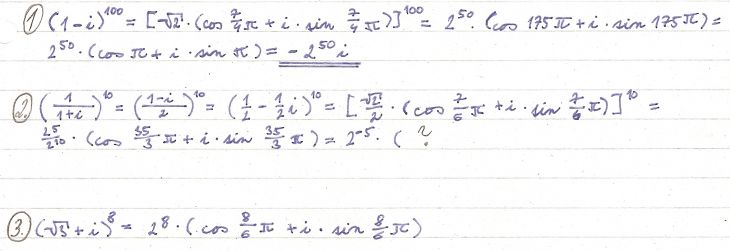 1) (1-i)^100 = [√2 · (cos 7/4 π + i · sin 7/4 π)]^100 = 2^50 · (cos 175π + i · sin 175π) =
2^50 · (cos π + i · sin π) = - 2^50 i
2. (1/(1+i))^10 = ((1-i)/2)^10 = (1/2 - 1/2 i)^10 = [√2/2 · (cos 7/6 π + i · sin 7/6 π)]^10 =
2^5/2^10 · (cos 35/3 π + i · sin 35/3 π) = 2^-5 · ( ?
3. (√3 + i)^8 = 2^8 · (cos 8/6 π + i · sin 8/6 π)